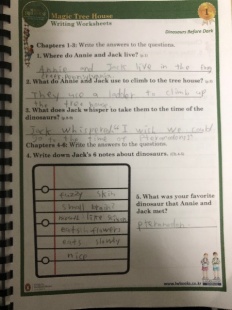 Magic Tree House
Writing Worksheets
1
Dinosaurs Before Dark
Chapters 1-3: Write the answers to the questions.
1. Where do Annie and Jack live?
Annie and Jack live in the
Pennsylvania
2. What do Annie and Jack use to climb to the tree house?
They use a ladder to climb up
the tree house
3. What does Jack whisper to take them to the time of the
dinosaurs?
Jack whispered "I wish we could
go to the time of
Chapters 4-6: Write the answers to the questions.
4. Write down Jack's 6 notes about dinosaurs.
skin
eats flowers
eats slowly
nice
5. What was your favorite
dinosaur that Annie and
Jack met?